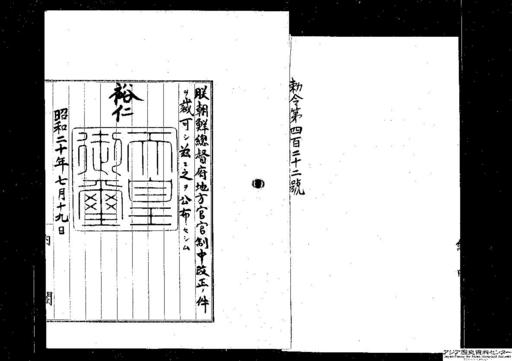 勅令第四百二十二號
朕朝鮮總督府地方官官制中改正ノ件
ヲ裁可シ茲ニ之ヲ公布セシム
裕仁
天皇
御璽
昭和二十年七月十九日
内閣
アジア歴史資料センター
Japan Center for Asian Historical Records